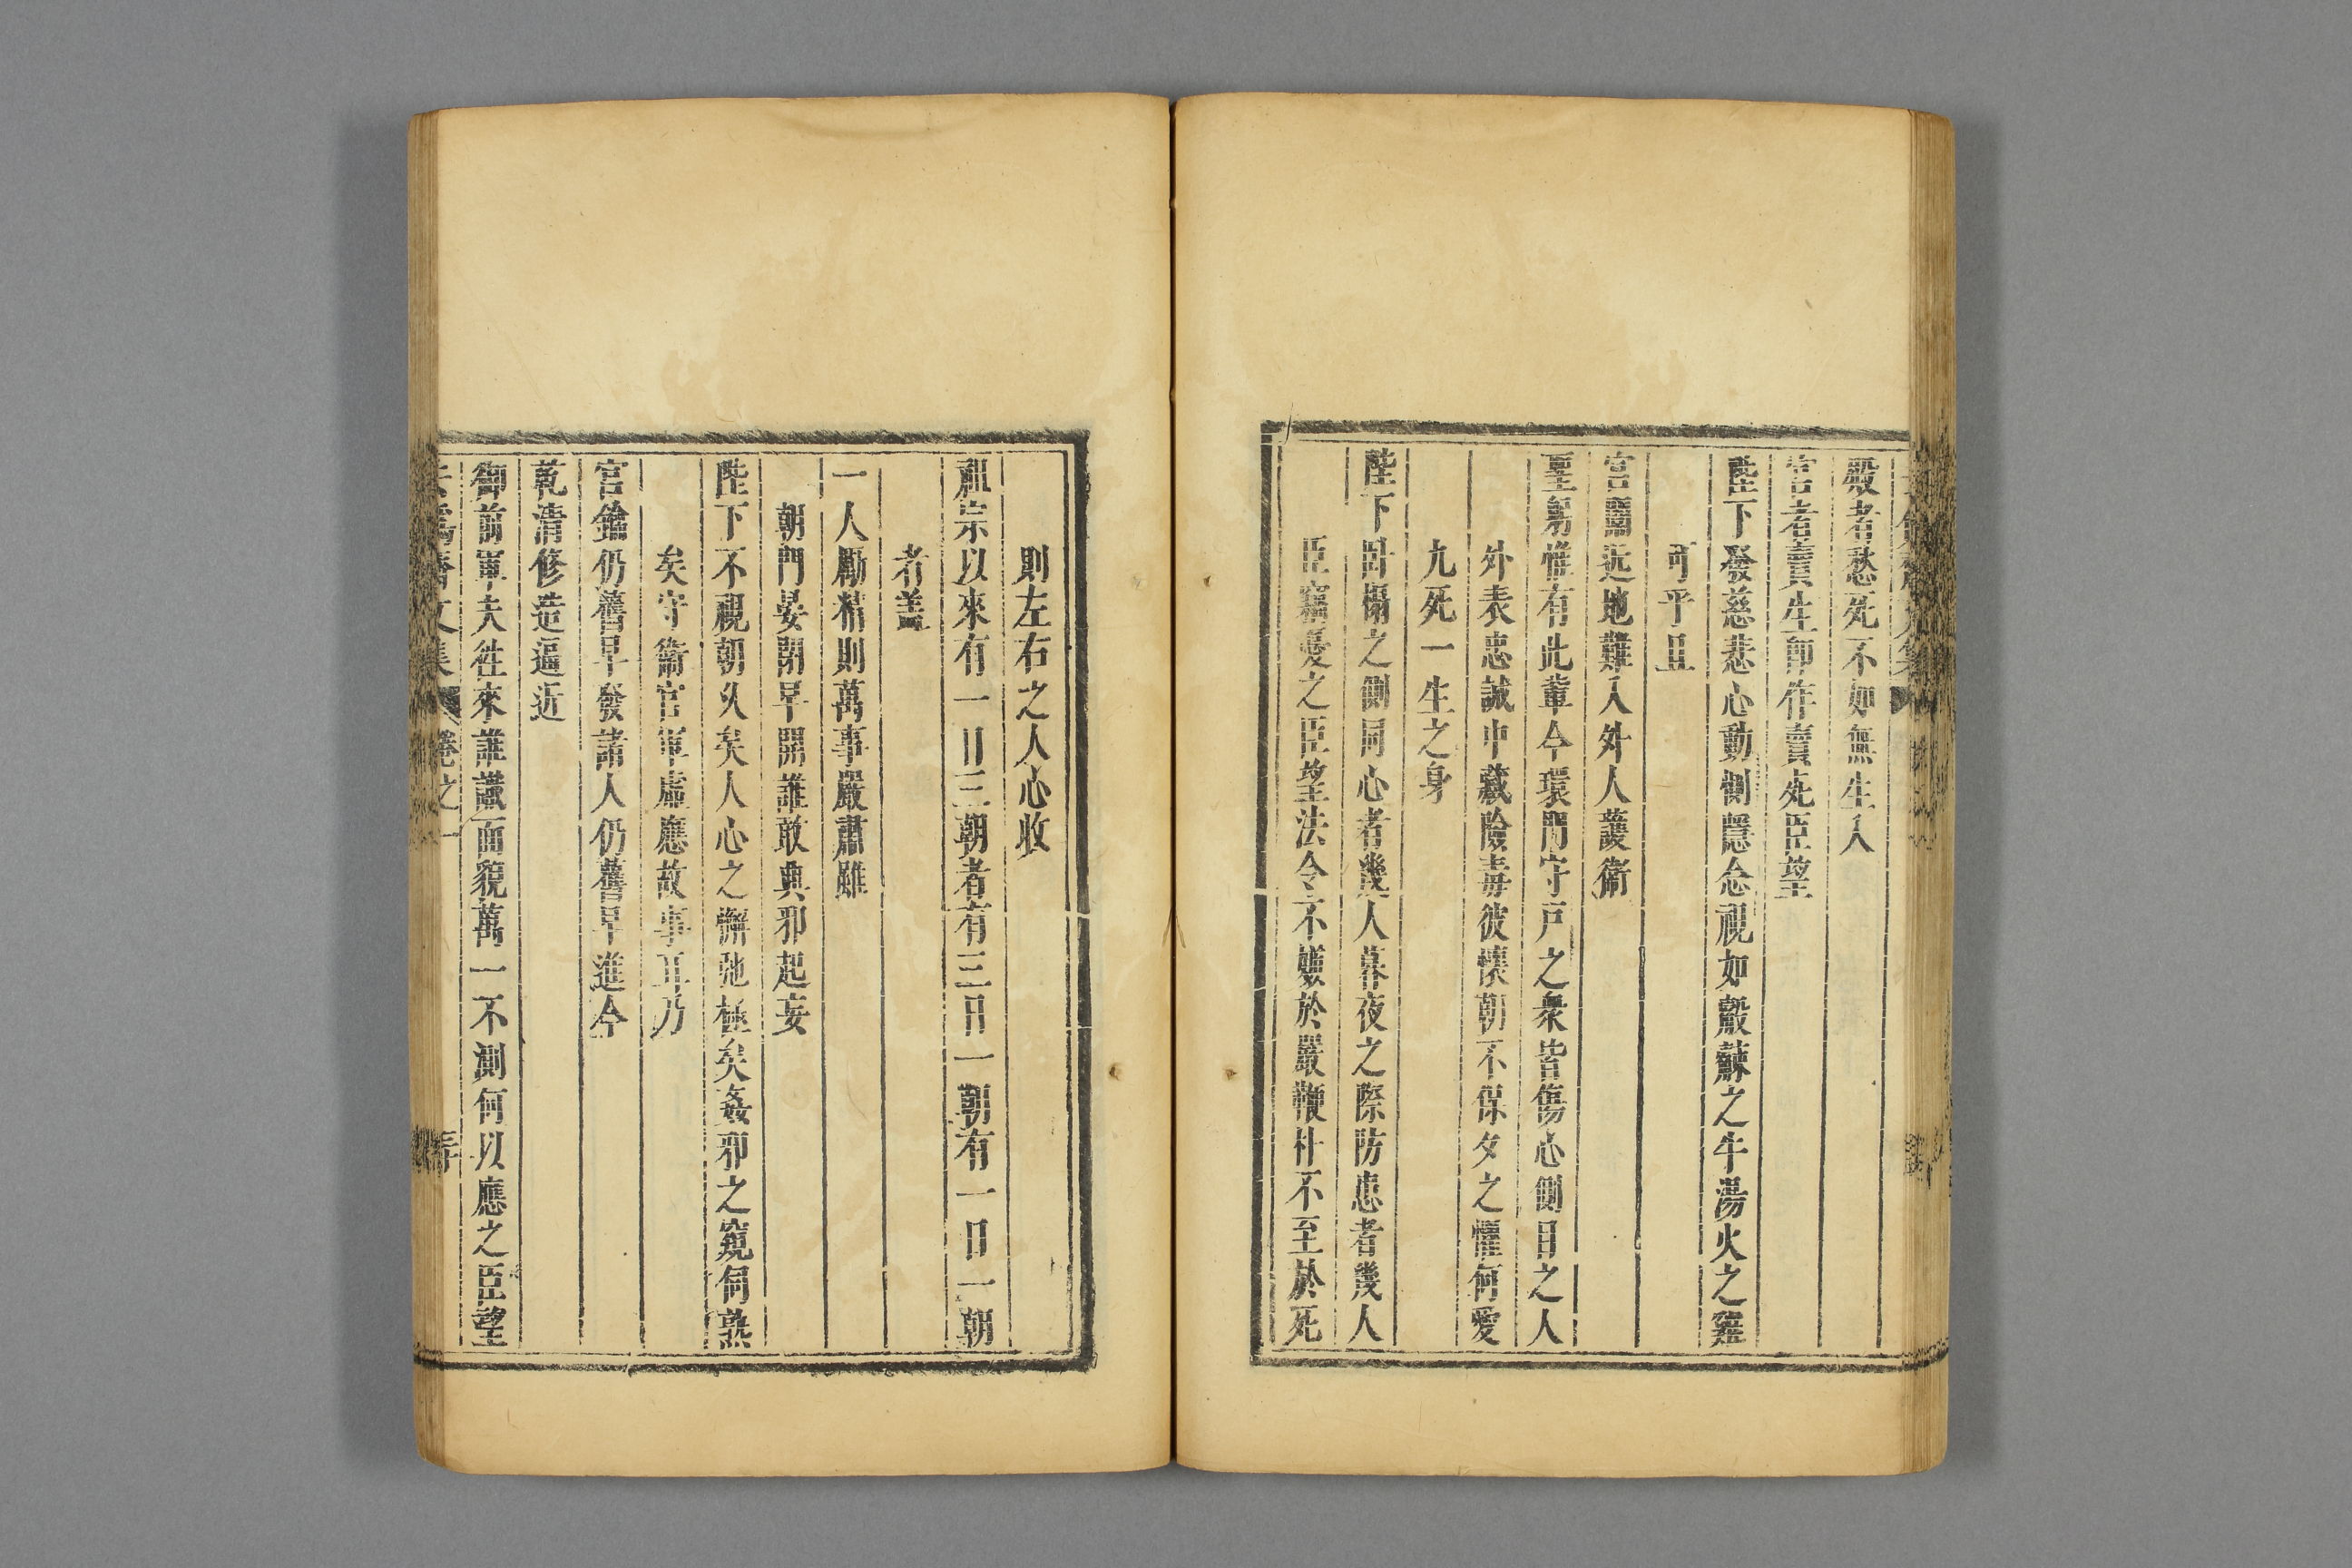 殿者愁死不如無生入
宮者賣生卽作賣死臣望
陛下發慈悲心動惻隱念視如觳觫之牛湯火之雞
可乎且
宮闈近地難入外人護衛
聖躬惟有此輩今環門守戸之衆皆傷心側目之人
外表忠誠中藏險毒彼懷朝不保夕之懼何愛
九死一生之身
陛下卧榻之側同心者幾人暮夜之際防患者幾人
臣竊憂之臣望法令不嫌於嚴鞭朴不至於死
則左右之人心收
祖宗以來有一日三朝者有三日一朝有一日一朝
者盖
一人勵精則萬事嚴肅雖
朝門晏閉早開誰敢興邪起妄
陛下不視朝久矣人心之懈弛極矣姦邪之窺伺熟
矣守衛官軍虛應故事耳乃
宮鑰仍舊早發諸人仍舊早進今
乾清修造逼近
御前軍夫徃來誰識面貌萬一不測何以應之臣望
去僞齋文集 卷之一 三十